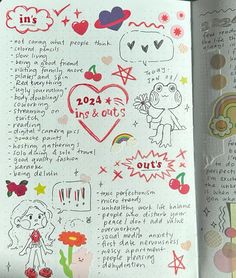 in's
- not caring what people think
- colored pencils
- slow living
- being a good friend
- visiting family more
- pilates and spin
- Red everything
- "ugly journaling"
- body doubling/
coworking
- streaming on
twitch
- reading
- digital camera pics
- gouache paints
- hosting gatherings
- solo dating & solo travel
- good quality fashion
- karaoke
- being delulu
today:
Jan
2024
ins & outs
outs
- toxic perfectionism
- micro trends
- unhealthy work life balance
- people who disturb your
peace / don't add value
- overworking
- social media anxiety
- first date nervousness
- messy apartment
- people pleasing
- dehydration